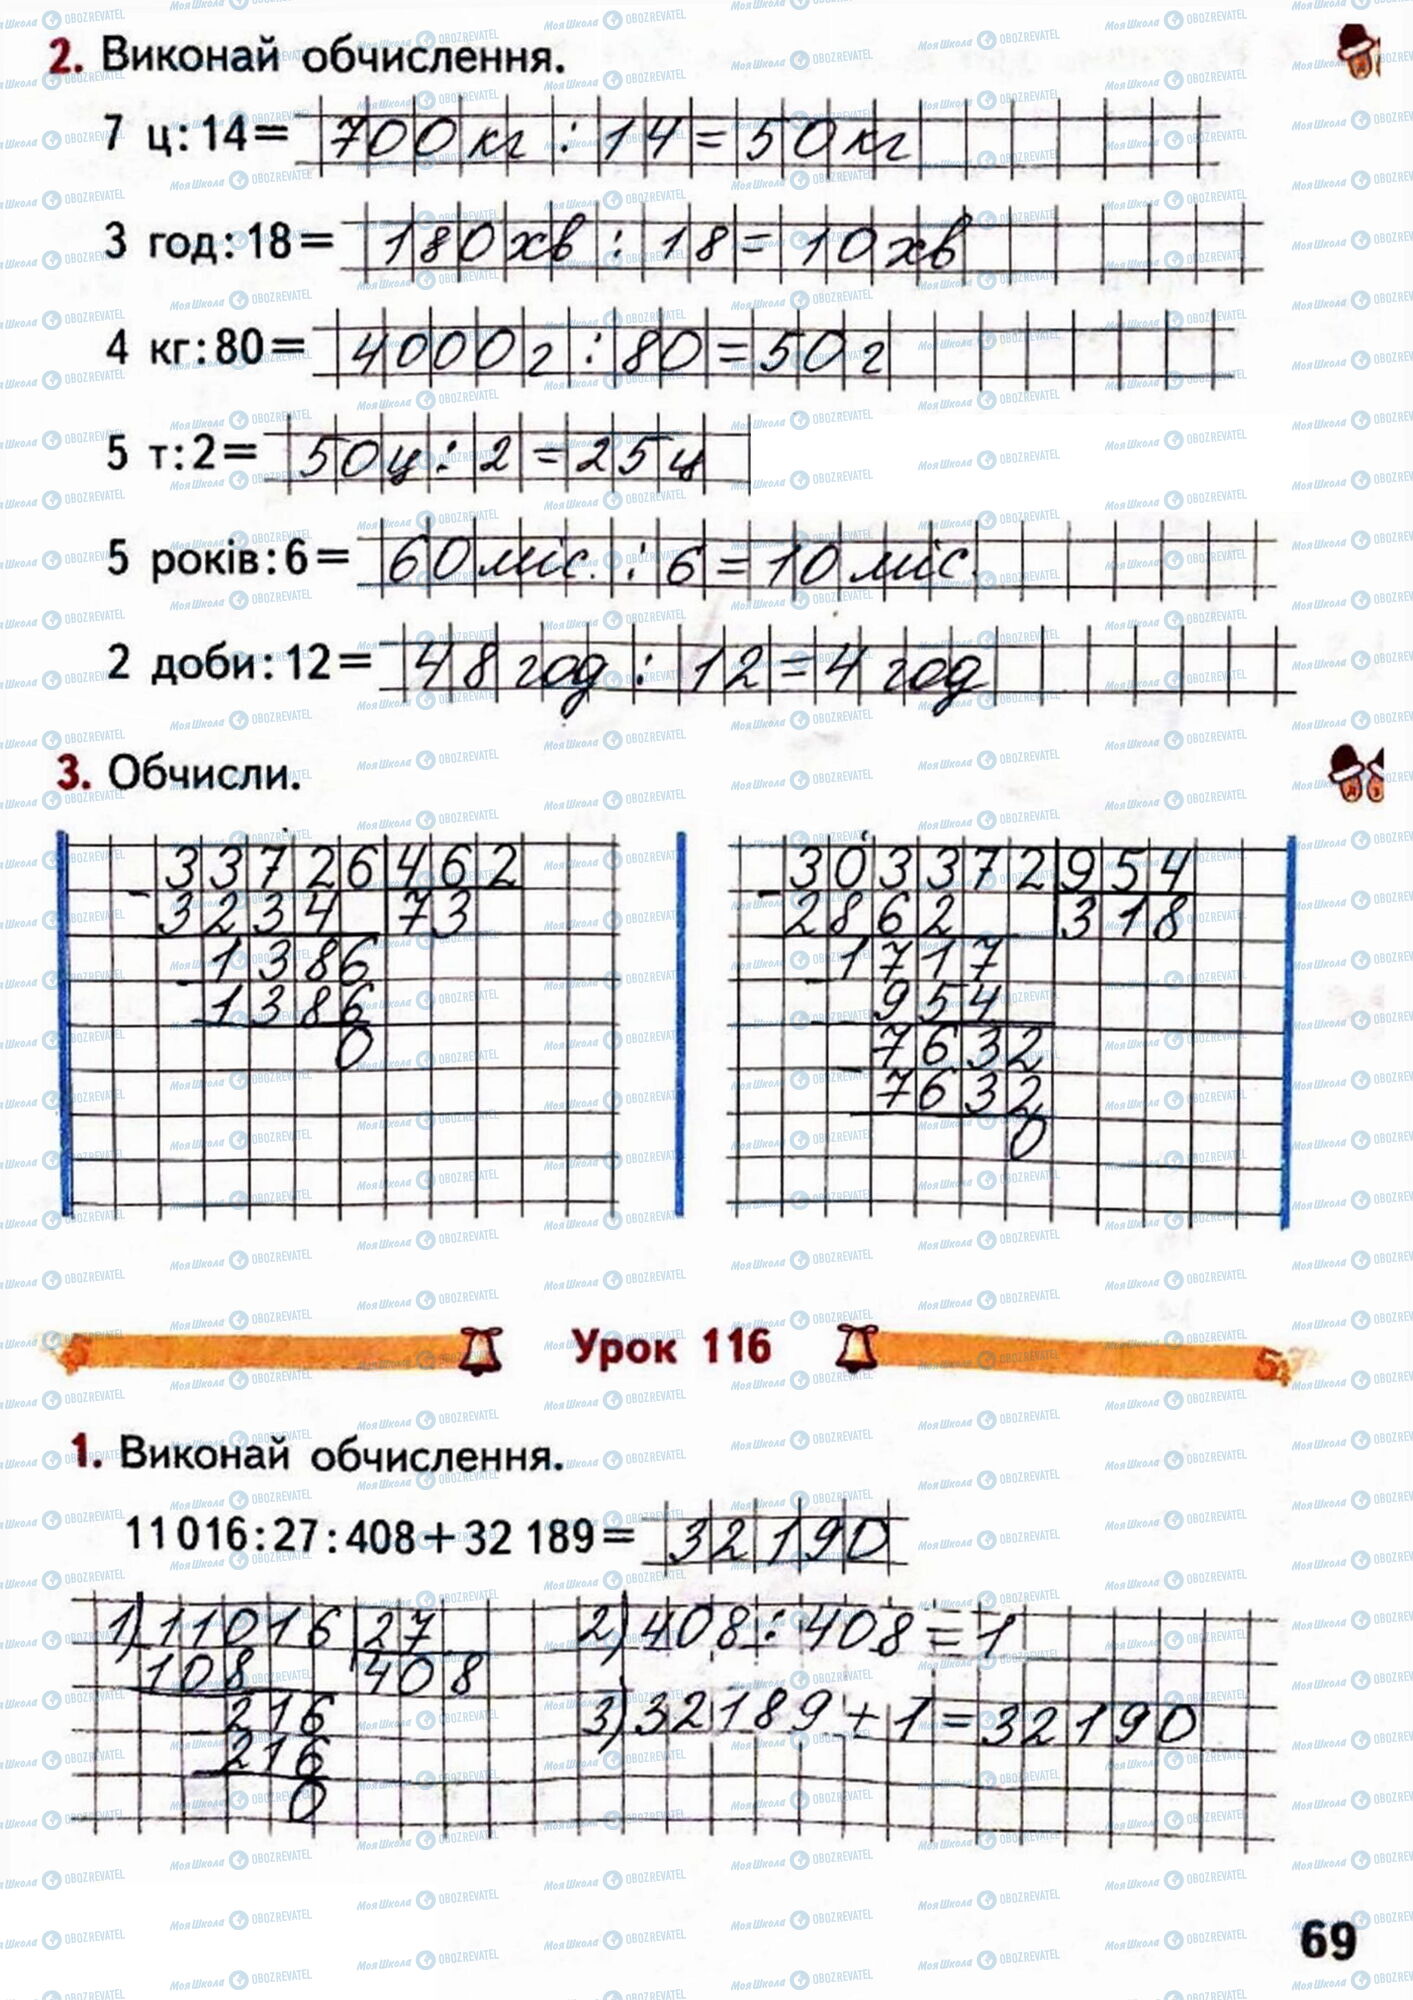 2. Виконай обчислення.
7 ц:14= 700кг : 14=50кг
3 год:18= 180хв : 18=10хв
4 кг:80= 4000г : 80=50г
5 т:2= 50ц : 2=25ц
5 років:6= 60міс. : 6=10міс.
2 доби:12= 48год : 12=4год
3. Обчисли.
33726 462
- 3234 73
1386
- 1386
0
303372 954
- 2862 318
1717
- 954
7632
- 7632
0
Урок 116
1. Виконай обчислення.
11 016:27:408+32 189= 32190
1) 11016 27
108 408
216
216
0
2) 408 : 408 = 1
3) 32189 + 1 = 32190
69
МояШкола OBOZREVATEL